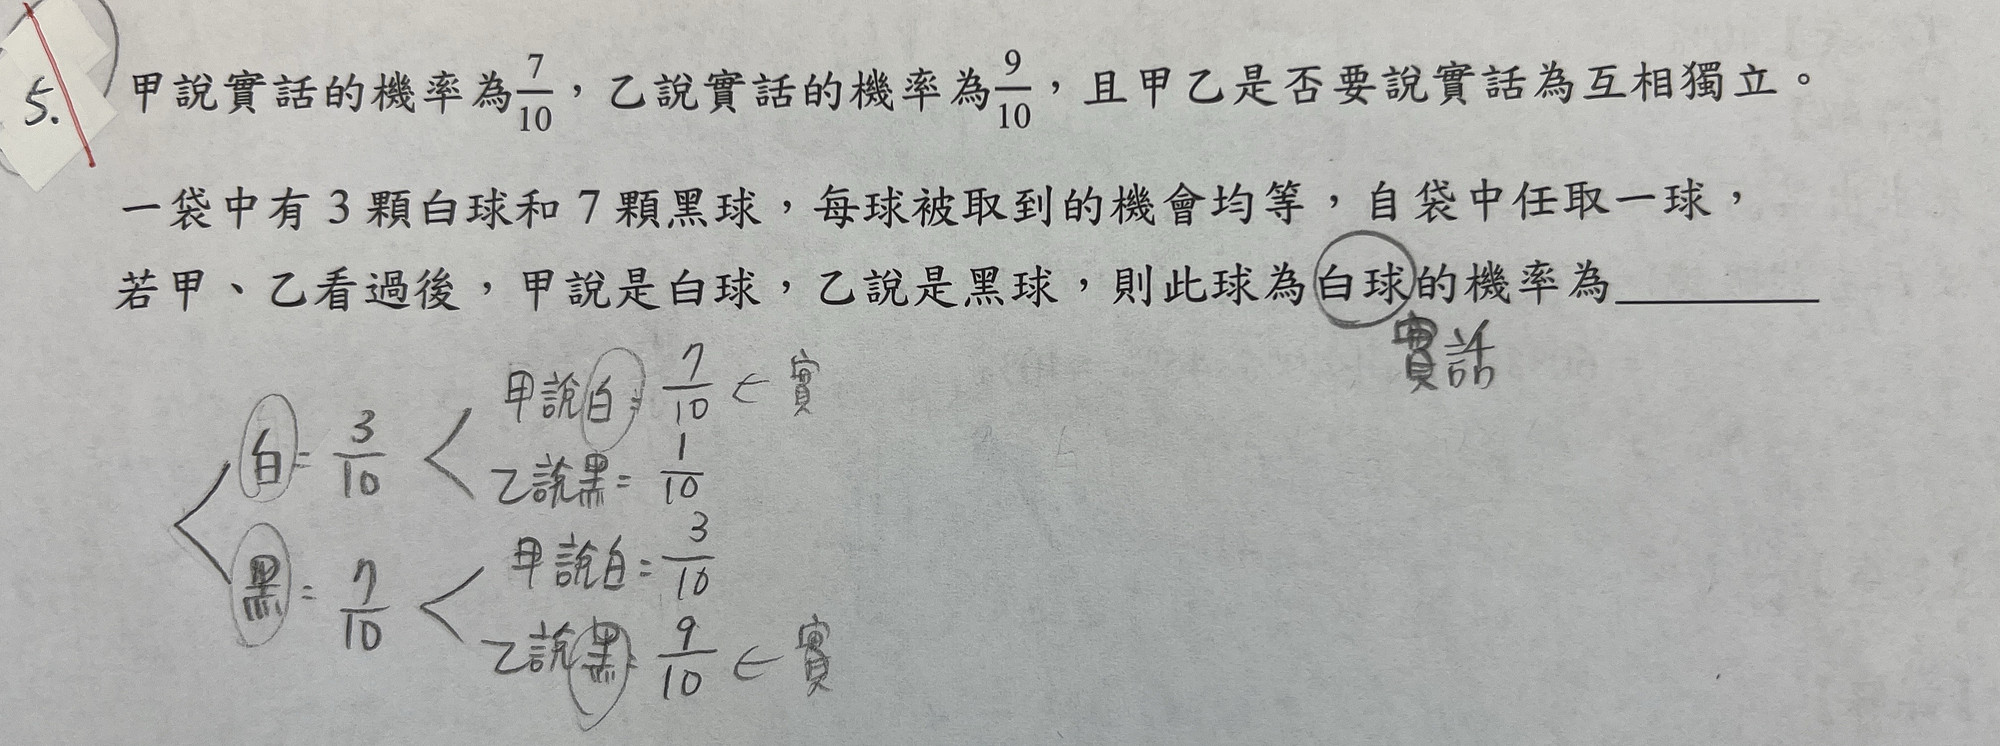 5.
甲說實話的機率為7/10,乙說實話的機率為9/10,且甲乙是否要說實話為互相獨立。
一袋中有 3 顆白球和 7 顆黑球,每球被取到的機會均等,自袋中任取一球,
若甲、乙看過後,甲說是白球,乙說是黑球,則此球為白球的機率為________
實話
白 = 3/10 < 甲說白 = 7/10 ← 實
乙說黑 = 1/10
黑 = 7/10 < 甲說白 = 3/10
乙說黑 = 9/10 ← 實